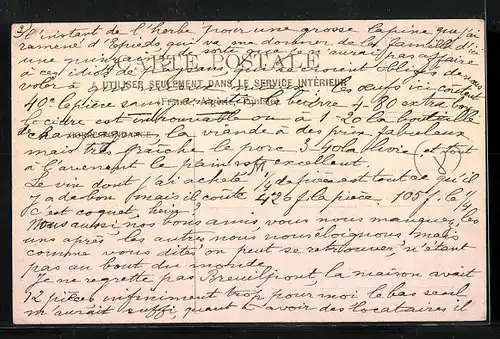 3) l'instant de l'herbe pour une grosse lapine que j'ai
ramené d'Epieds qui va me donner de la famille d'ici
une de sorte que je n'aurai pas affaire
CARTE POSTALE
à ces idiots de paysans qui se croient obligés de nous
A UTILISER SEULEMENT DANS LE SERVICE INTÉRIEUR
voler à les œufs ici coûtent
(France, Algérie, Tunisie)
40c la pièce sans le beurre 4-80 extra bon
le cidre est introuvable ou à 1-20 la bouteille
CORRESPONDANCE
la viande à des prix fabuleux
mais très fraîche le porc 3-40 la livre et tout
à l'avenant le pain est excellent.
Le vin dont j'ai acheté 1/4 de pièce est tout ce qu'il
y a de bon mais il coûte 420 f la pièce, 105 f. le 1/4
C'est coquet, hein?
Nous aussi nos bons amis, vous nous manquez, les
uns après les autres nous nous éloignons mais
comme vous dites on peut se retrouver, n'étant
pas au bout du monde.
Je ne regrette pas Breuilpont, la maison avait
12 pièces infiniment trop pour moi le bas seul
m'aurait suffi, quant à avoir des locataires il